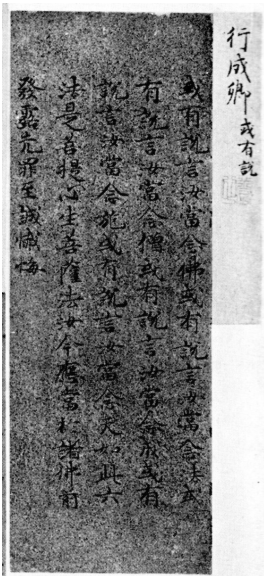 行成卿 或有説
或有説言汝當念佛或有説言汝當念法或
有説言汝當念僧或有説言汝當念戒或有
説言汝當念施或有説言汝當念天如此六
法是菩提心生菩薩法汝今應當於諸佛前
發露先罪至誠懺悔